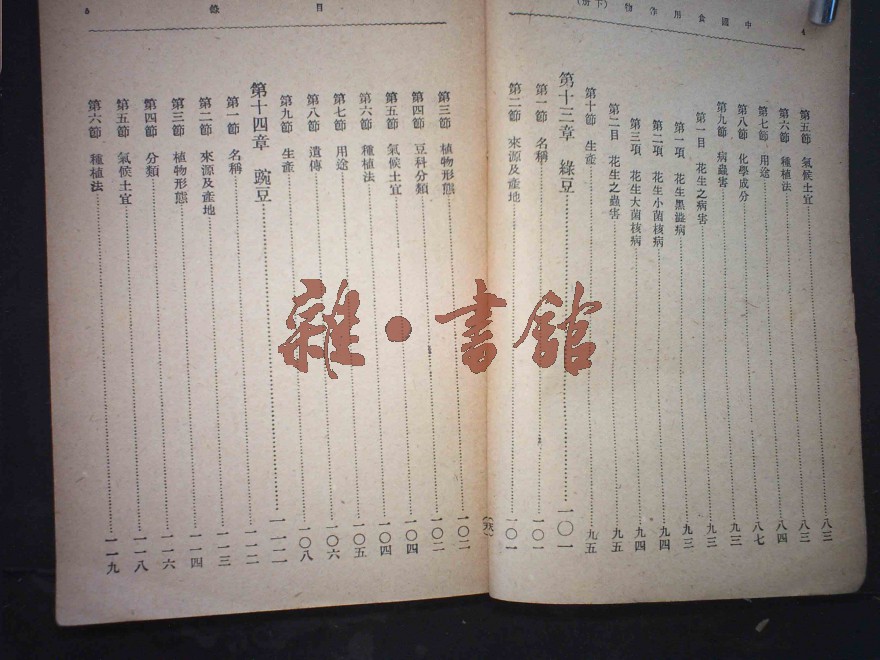 中國食用作物（下册） 4
第五節 氣候土宜 八三
第六節 種植法 八三
第七節 用途 八四
第八節 化學成分 八七
第九節 病蟲害 九三
第一目 花生之病害 九三
第一項 花生黑澁病 九三
第二項 花生小菌核病 九四
第三項 花生大菌核病 九四
第二目 花生之蟲害 九五
第十節 生產 九五
第十三章 綠豆 一〇一
第一節 名稱 一〇一
第二節 來源及產地 一〇一
目錄 5
第三節 植物形態 一〇二
第四節 豆科分類 一〇二
第五節 氣候土宜 一〇四
第六節 種植法 一〇四
第七節 用途 一〇五
第八節 遺傳 一〇六
第九節 生產 一〇八
第十四章 豌豆 一一二
第一節 名稱 一一二
第二節 來源及產地 一一三
第三節 植物形態 一一四
第四節 分類 一一六
第五節 氣候土宜 一一八
第六節 種植法 一一九
雜·書館